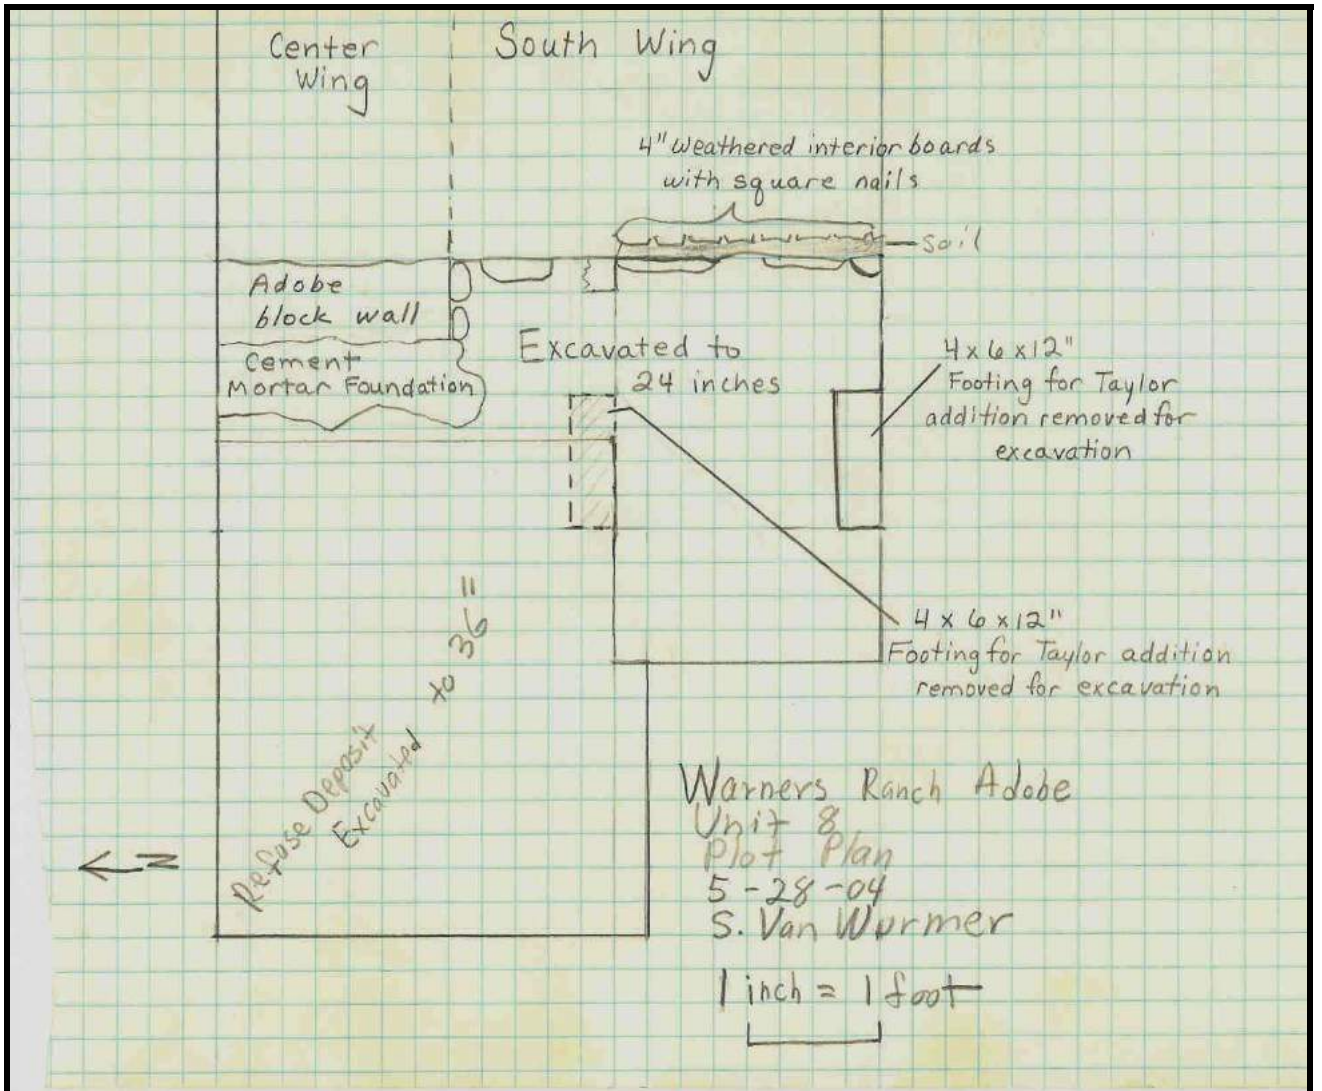 Center
Wing
South Wing
4" weathered interior boards
with square nails
soil
Adobe
block wall
Cement
Mortar Foundation
Excavated to
24 inches
4 x 6 x 12"
Footing for Taylor
addition removed for
excavation
4 x 6 x 12"
Footing for Taylor addition
removed for excavation
Refuse Deposit
Excavated to 36"
N
Warners Ranch Adobe
Unit 8
Plot Plan
5-28-04
S. Van Wormer
1 inch = 1 foot